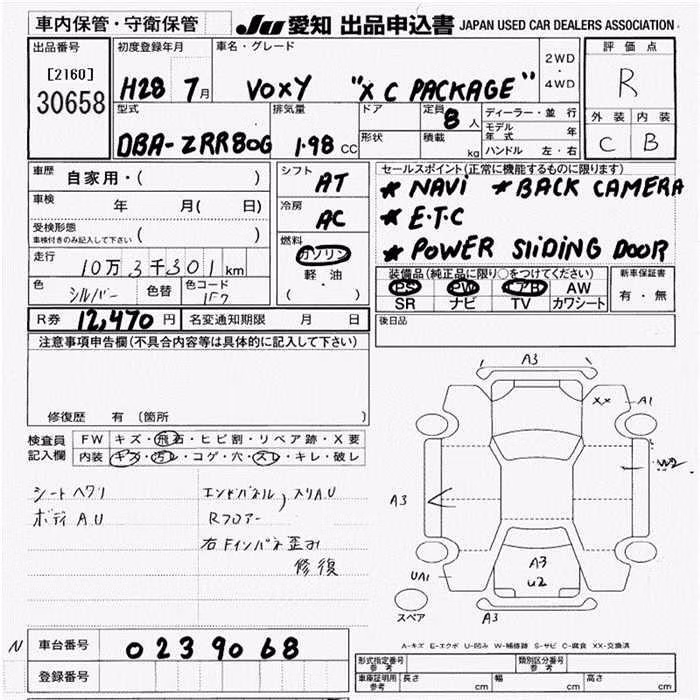 車内保管・守衛保管 JU 愛知 出品申込書 JAPAN USED CAR DEALERS ASSOCIATION
出品番号 初度登録年月 車名・グレード 2WD ・ 4WD 評価点
[2160] H28 7月 VOXY "X C PACKAGE" R
30658
型式 排気量 ドア 定員 8人 ディーラー・並行 外装 内装
DBA-ZRR80G 1.98 CC 形状 積載 kg モデル年式 年 C B
ハンドル 左・右
車歴 自家用・( ) シフト AT セールスポイント(正常に機能するものに限ります)
* NAVI * BACK CAMERA
車検 年 月( 日) 冷房 AC * E.T.C
受検形態 車検付きのみ記入して下さい ( ) 燃料 ガソリン * POWER SliDING DOOR
走行 10万3千301km 軽・油 装備品(純正品に限り○をつけてください) 新車保証書
色 シルバー 色替 色コード 1F7 ( ・ ) PS PW エアB AW 有・無
SR ナビ TV カワシート
R券 12,470円 名変通知期限 月 日 後日品
注意事項申告欄(不具合内容等は具体的に記入して下さい)
修復歴 有 (箇所 )
検査員記入欄 FW キズ・飛石・ヒビ割・リペア跡・X要
内装 キズ・汚レ・コゲ・穴・スレ・キレ・破レ
シートヘタリ エンドパネル, スリA.U
ボディ A.U Rフロアー
右Fインパネ歪み
修復
A3
XX A1
W2
A3
A3
U2
UA1
スペア A3
A-キズ E-エクボ U-凹み W-補修跡 S-サビ C-腐食 XX-交換済
N 車台番号 0239068
登録番号
形式指定番号 参考 類別区分番号 参考
車庫証明用 参考 長さ cm 幅 cm 高さ cm